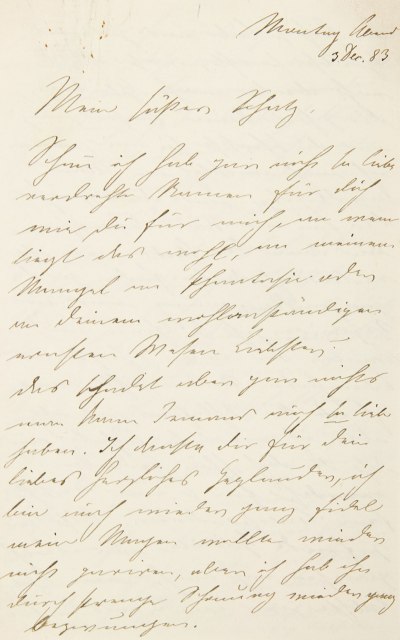 Montag Abend
3 Dec. 83
Mein süßer Schatz,
Schau ich hab gar nicht so liebe
verdrehte Namen für dich
wie du für mich, an wem
liegt das wohl, an meinem
Mangel an Phantasie oder
an deinem wohlanständigen
ernsten Wesen Liebster?
das schadet aber gar nichts
man kann Jemand auch so lieb
haben. Ich danke dir für dein
liebes herzliches Geplauder, ich
bin auch wieder ganz fidel
mein Magen wollte wieder
nicht pariren, aber ich hab ihn
durch strenge Schonung wieder ganz
bezwungen.